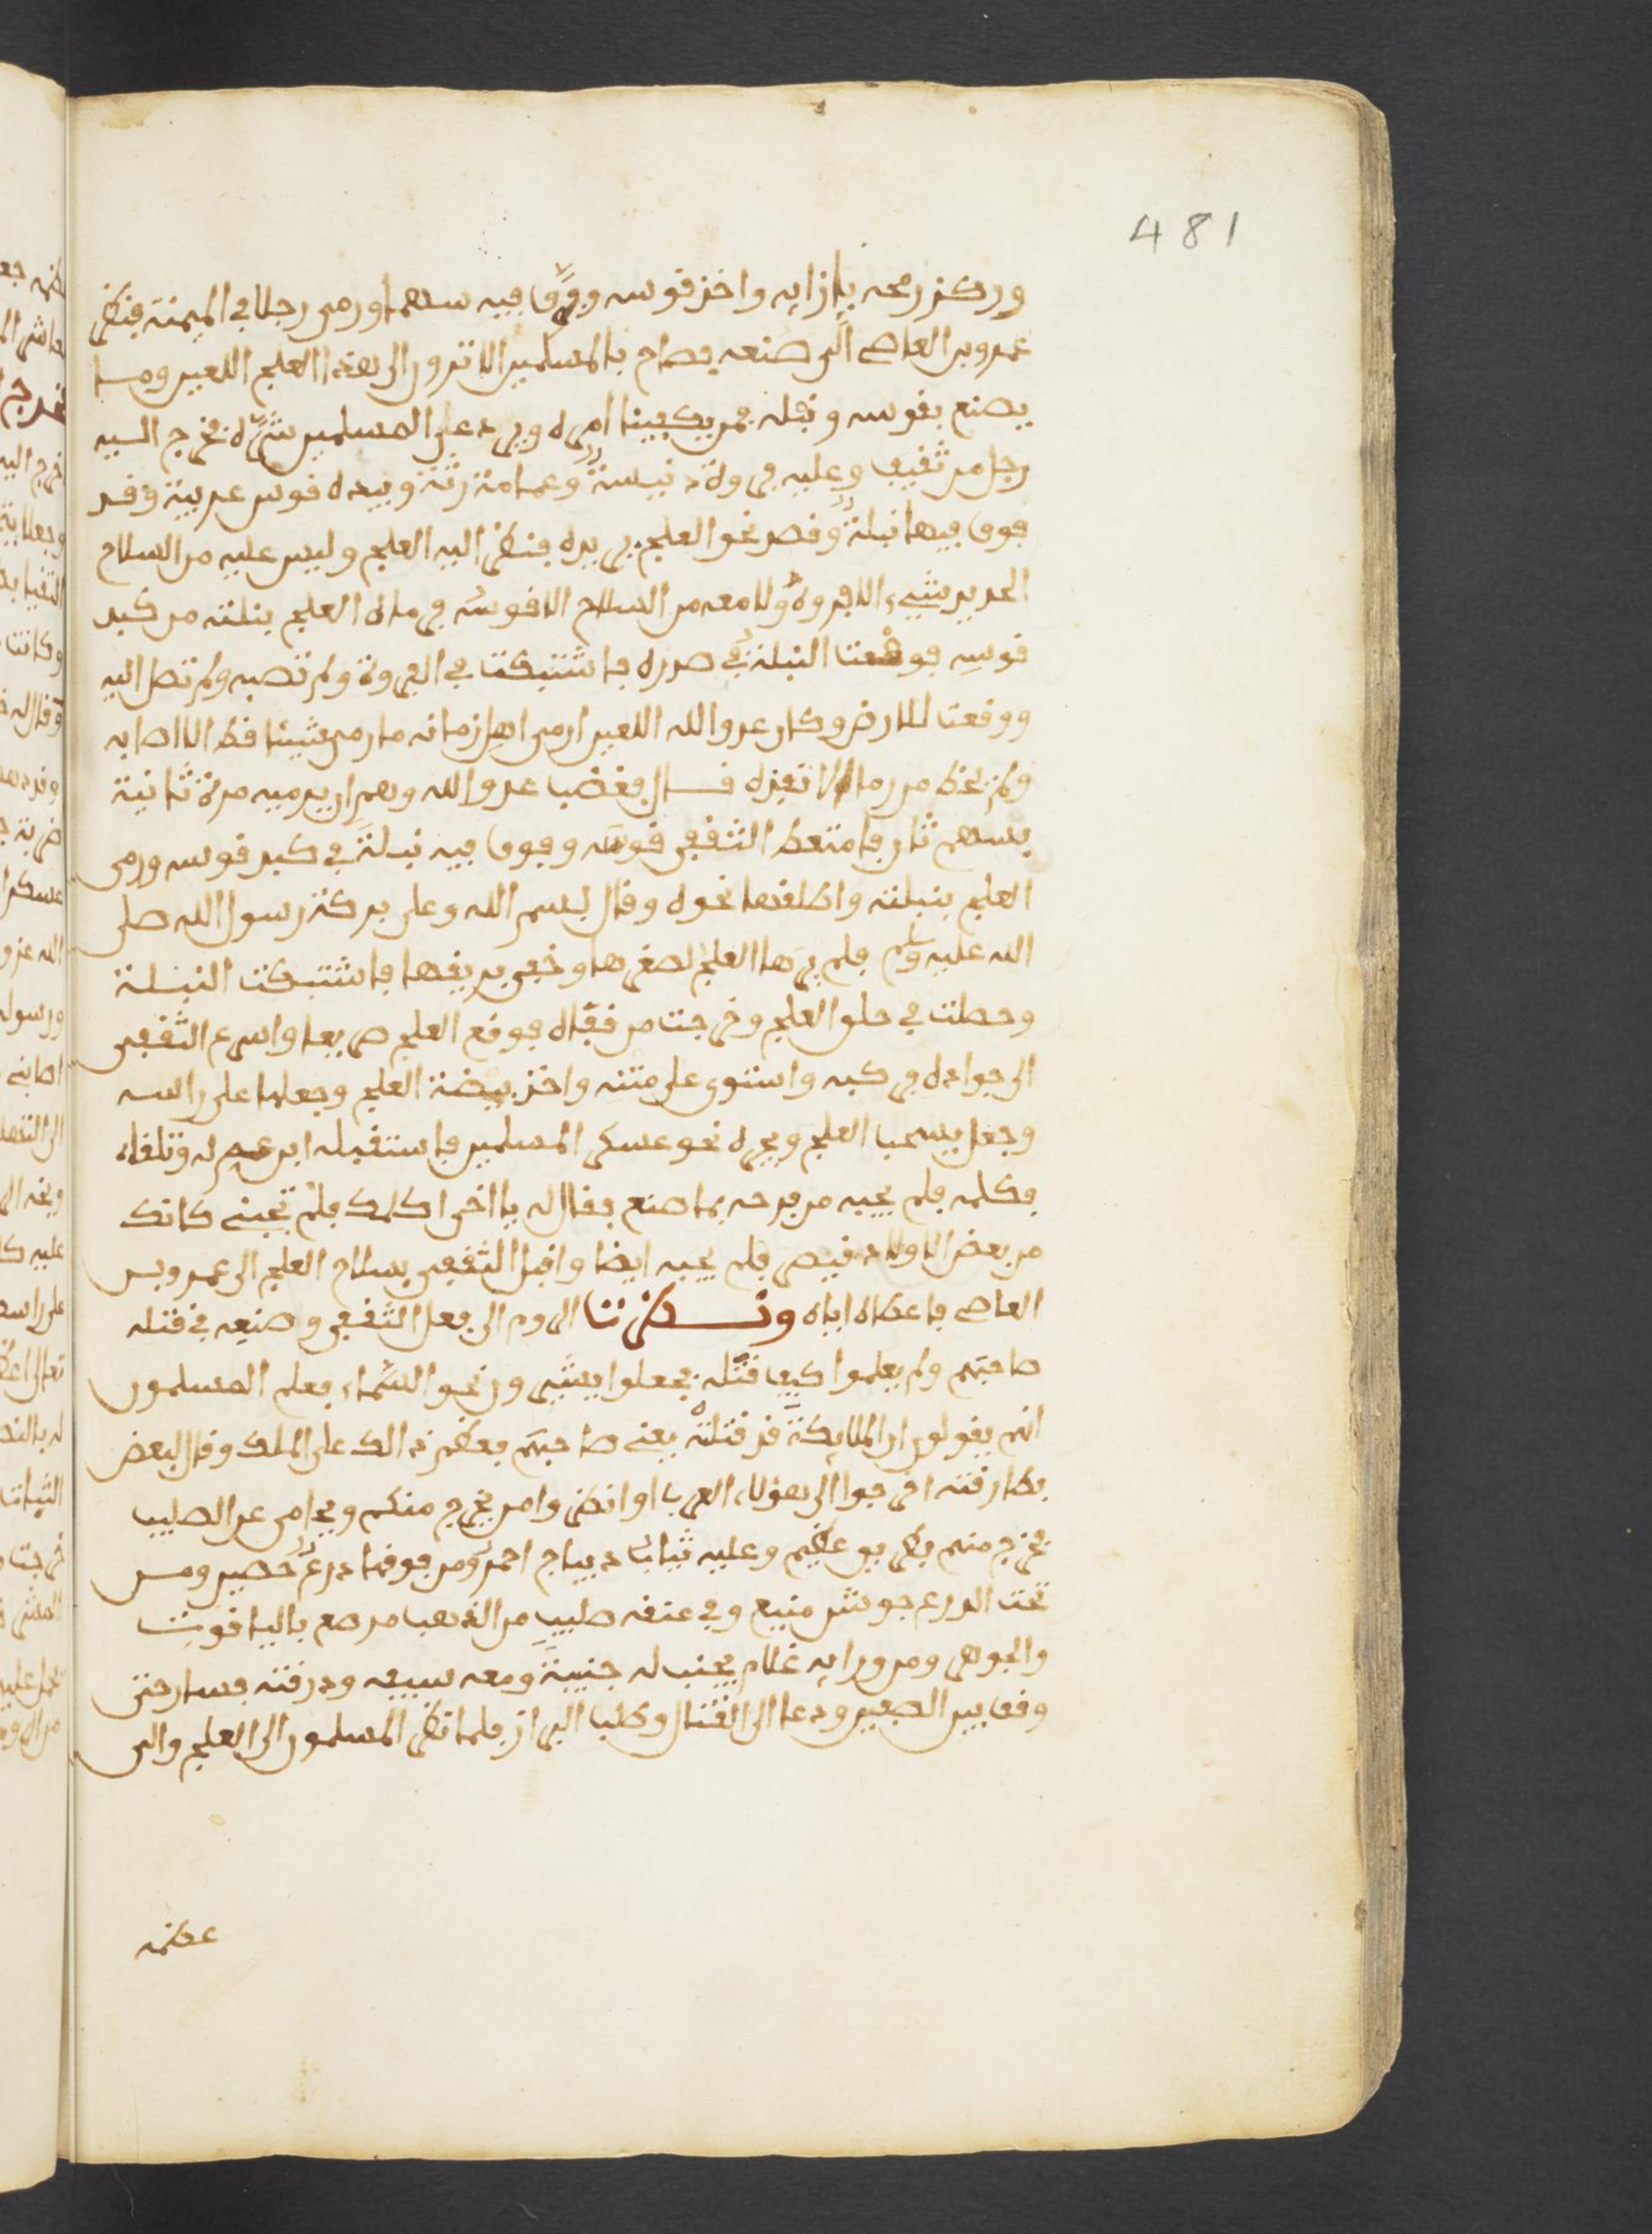 481
وركز رمحه بإزائه واخذ قوسه وفوّق فيه سهما ورمى رجلا في الميمنة فنظر
عمرو بن العاصي الى صنعه فصاح بالمسلمين الا ترون الى هذا العلج اللعين وما
يصنع بقوسه ونبله فمن يكفينا امره ويرد على المسلمين شرّه فخرج اليه
رجل من ثقيف وعليه فروة دنيسة وعمامة رثة وبيده قوس عربية وقد
فوق فيها نبلة وقصد نحو العلج يريده فنظر اليه العلج وليس عليه من السلاح
الحديد شيء الا فروة ولا معه من السلاح الا قوسه فرماه العلج بنبلته من كبد
قوسه فوقعت النبلة في صدره فاشتبكت في الفروة ولم تصبه ولم تصل اليه
ووقعت للارض وكان عدو الله اللعين ارمى اهل زمانه ما رمى شيئا قط الا اصابه
ولم يخط من رماه قال فغضب عدو الله وهم ان يرميه مرة ثانية
بسهم ثان فامتعط الثقفي قوسه وفوق فيه نبلة في كبد قوسه ورمى
العلج بنبلته واطلقها نحوه وقال بسم الله وعلى بركة رسول الله صلى
الله عليه وسلم فلم يرها العلج لصغرها وخفي بريقها فاشتبكت النبلة
وحصلت في حلق العلج وخرجت من قفاه فوقع العلج صريعا واسرع الثقفي
الى جواده فركبه واستوى على متنه واخذ بيضة العلج وجعلها على راسه
وجعل يسحب العلج ويجره نحو عسكر المسلمين فاستقبله ابن عم له وتلقاه
فكلمه فلم يجبه من فرحه بما صنع فقال له يا اخي اكلمك فلم تجبني كانك
من بعض الاولاد قيصر فلم يجبه ايضا واقبل الثقفي بسلاح العلج الى عمرو بن
العاصي فاعطاه اياه ونظرت الروم الى فعل الثقفي وصنيعه في قتله
صاحبهم ولم يعلموا كيف قتله فجعلوا يشيرون نحو السماء فعلم المسلمون
انهم يقولون ان الملايكة قد قتلته يعني صاحبهم فعظم ذالك على الملك وقال لبعض
بطارقته اخرجوا الى هؤلاء العرب او انظروا من يخرج منكم ويحامي عن الصليب
فخرج منهم بطريق عظيم وعليه ثياب ديباج احمر ومن فوقها درع حصين ومن
تحت الدرع جوشن منيع وفي عنقه صليب من الذهب مرصع بالياقوت
والجوهر ومن ورايه غلام يجنب له جنيبة ومعه سيفه ودرقته فسار حتى
وقف بين الصفين ودعا الى القتال وطلب البراز فلما نظر المسلمون الى العلج والى
عظمه